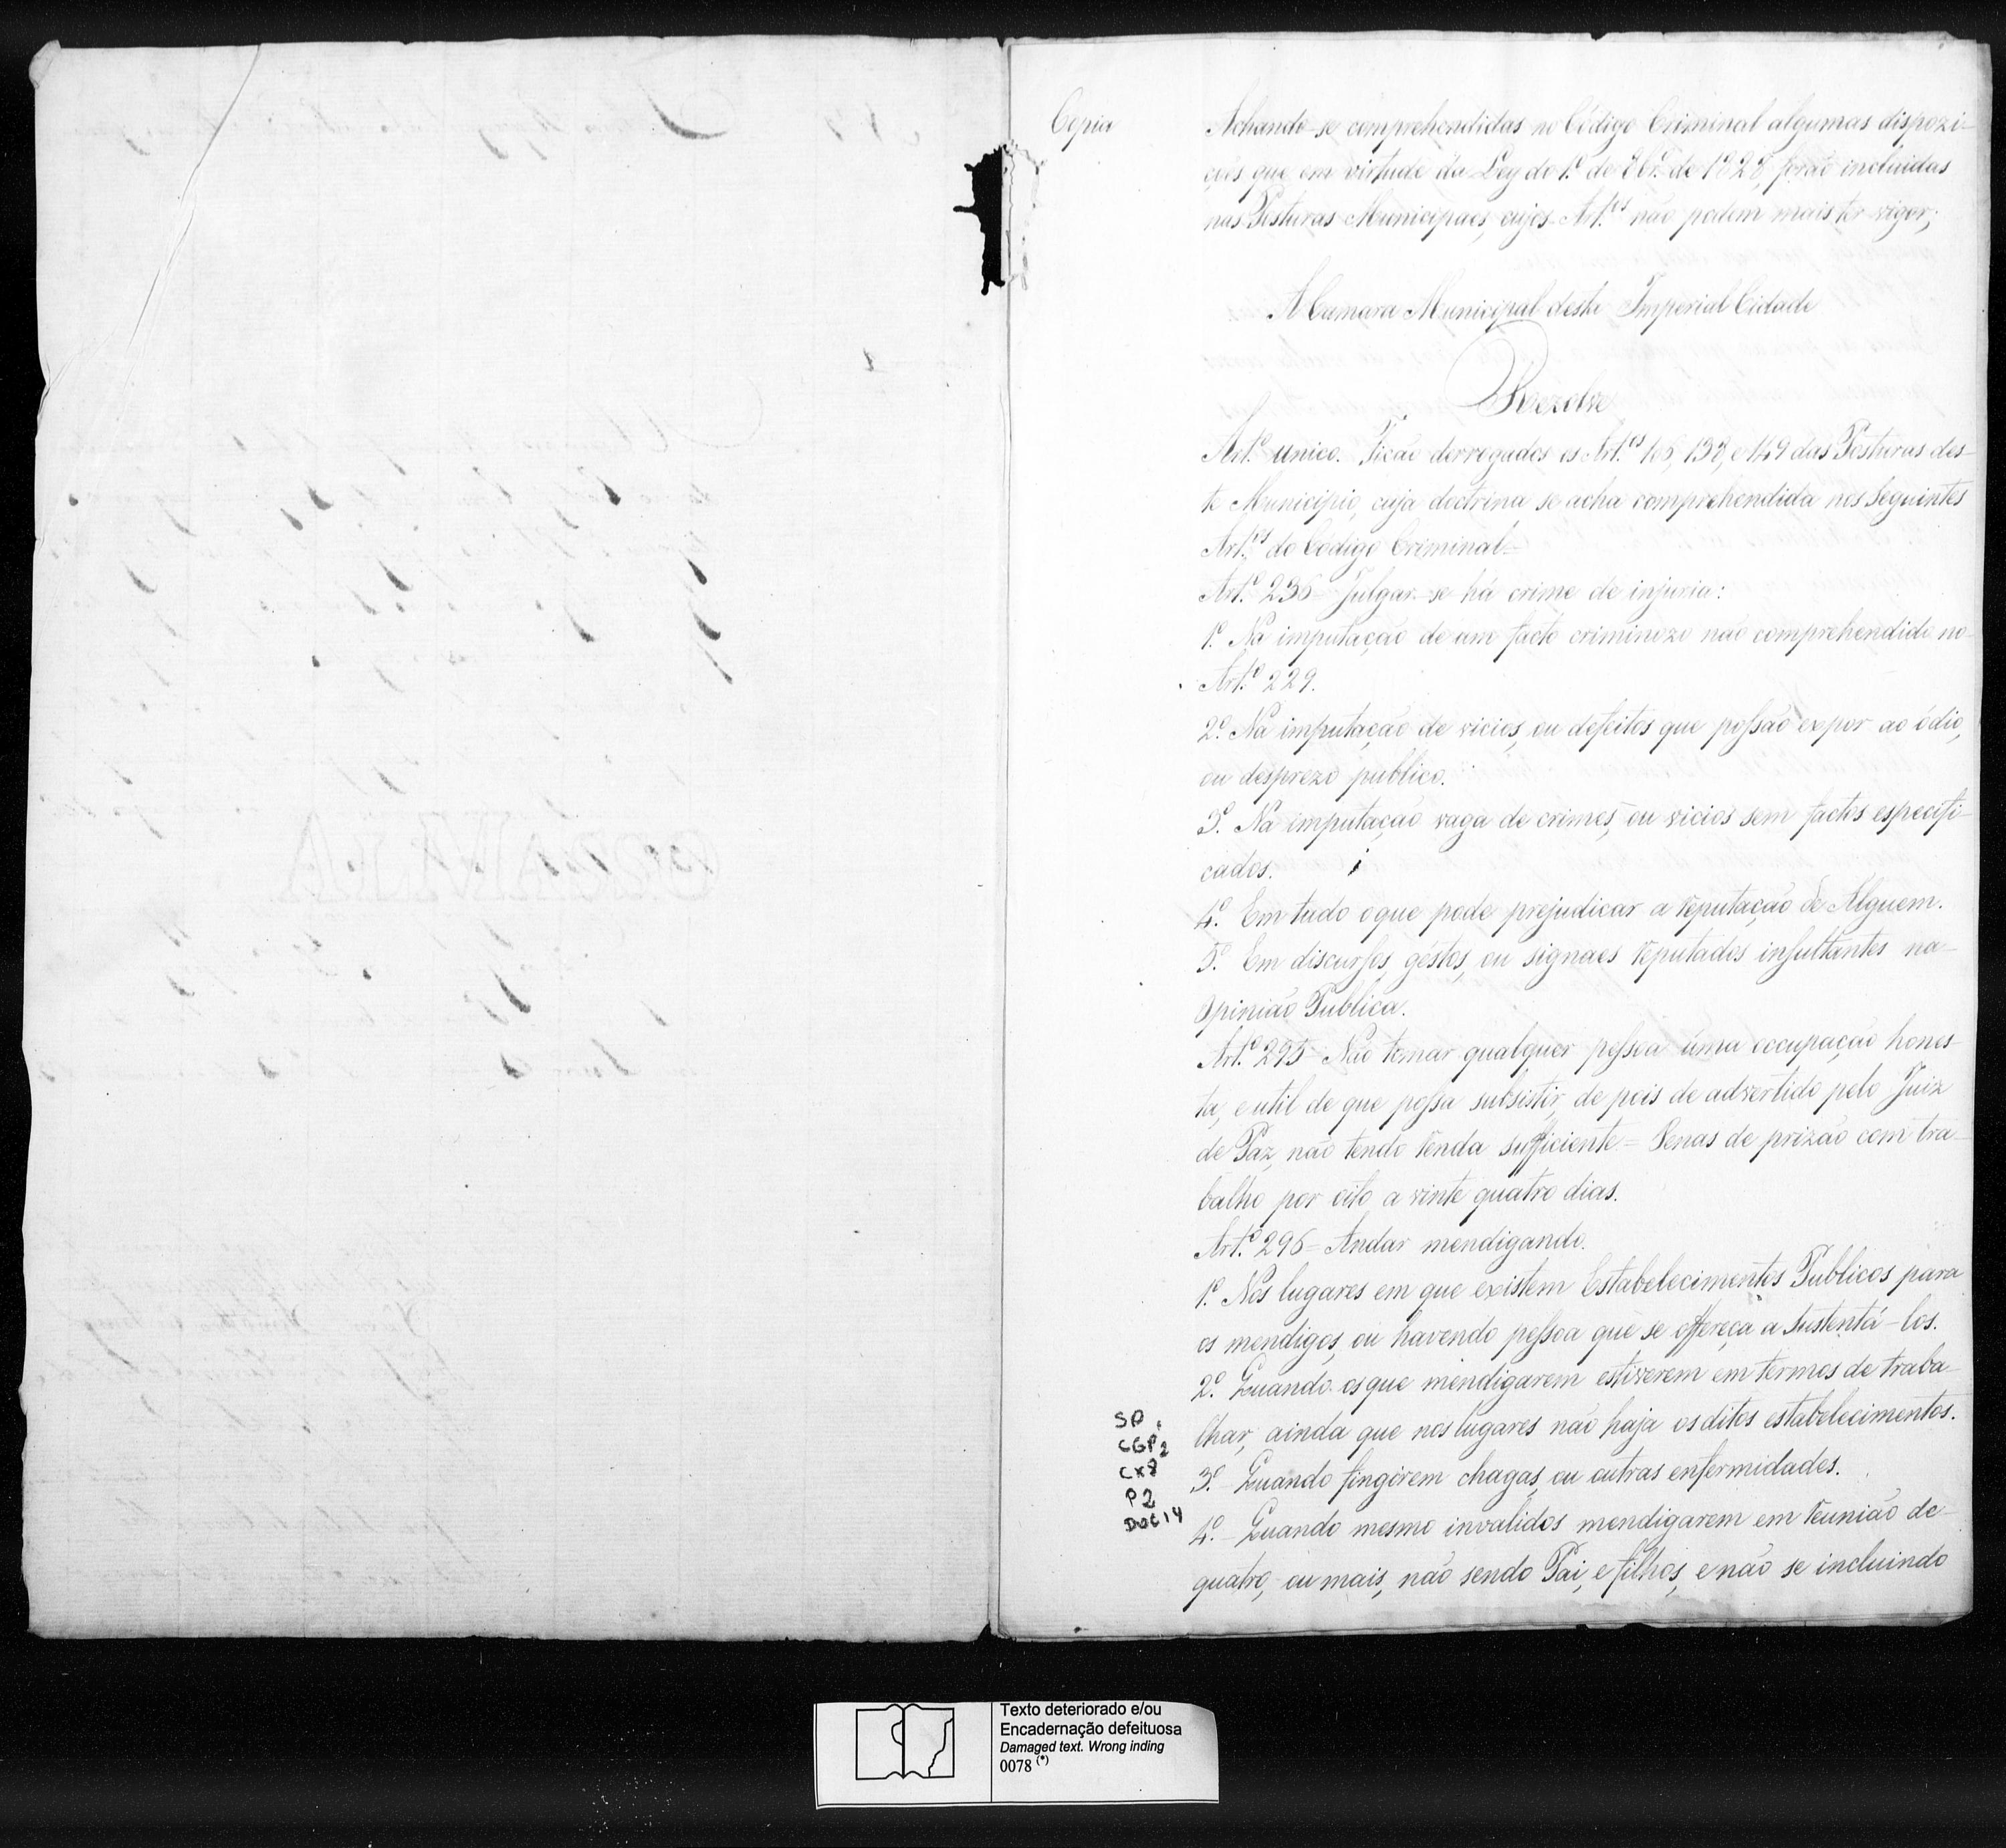 Copia
Achando-se comprehendidas no Código Criminal algumas dispozi-
çoẽs que em virtude da Ley do 1º de 8br.º de 1828, forão incluidas
nas Posturas Municipaes, cujos Art.os não podem mais ter vigor;
A Camara Municipal desta Imperial Cidade
Rezolve
Art.º unico. Ficão derrogados os Art.os 106, 138, e 149 das Posturas des-
te Municipio, cuja doctrina se acha comprehendida nos Seguintes
Art.os do Código Criminal=
Art.º 236= Julgar-se há crime de injuria:
1º. Na imputação de um facto criminozo não comprehendido no
Art.º 229.
2º. Na imputação de vicios, ou defeitos que possão expor ao ódio,
ou desprezo publico.
3º. Na imputação vaga de crimes, ou vicios sem factos especifi-
cados.
4º. Em tudo o que pode prejudicar a reputação de Alguem.
5º. Em discursos, géstos, ou signaes reputados insultantes na
Opinião Publica.
Art.º 295= Não tomar qualquer pessoa uma occupação hones-
ta, e util de que possa subsistir, de pois de advertido pelo Juiz
de Paz, não tendo renda sufficiente= Penas de prizão com tra-
balho por oito a vinte quatro dias.
Art.º 296= Andar mendigando.
1º. Nos lugares em que existem Estabelecimentos Publicos para
os mendigos, ou havendo pessoa que se offereça a Sustentá-los.
2º. Quando os que mendigarem estiverem em termos de traba-
lhar, ainda que nos lugares não haja os ditos estabelecimentos.
3º. Quando fingirem chagas, ou outras enfermidades.
4º. Quando mesmo invalidos mendigarem em reunião de
quatro, ou mais, não sendo Pai, e filhos, e não se incluindo
SP
CGP2
CX8
P2
DOC14
Texto deteriorado e/ou
Encadernação defeituosa
Damaged text. Wrong inding
0078 (*)